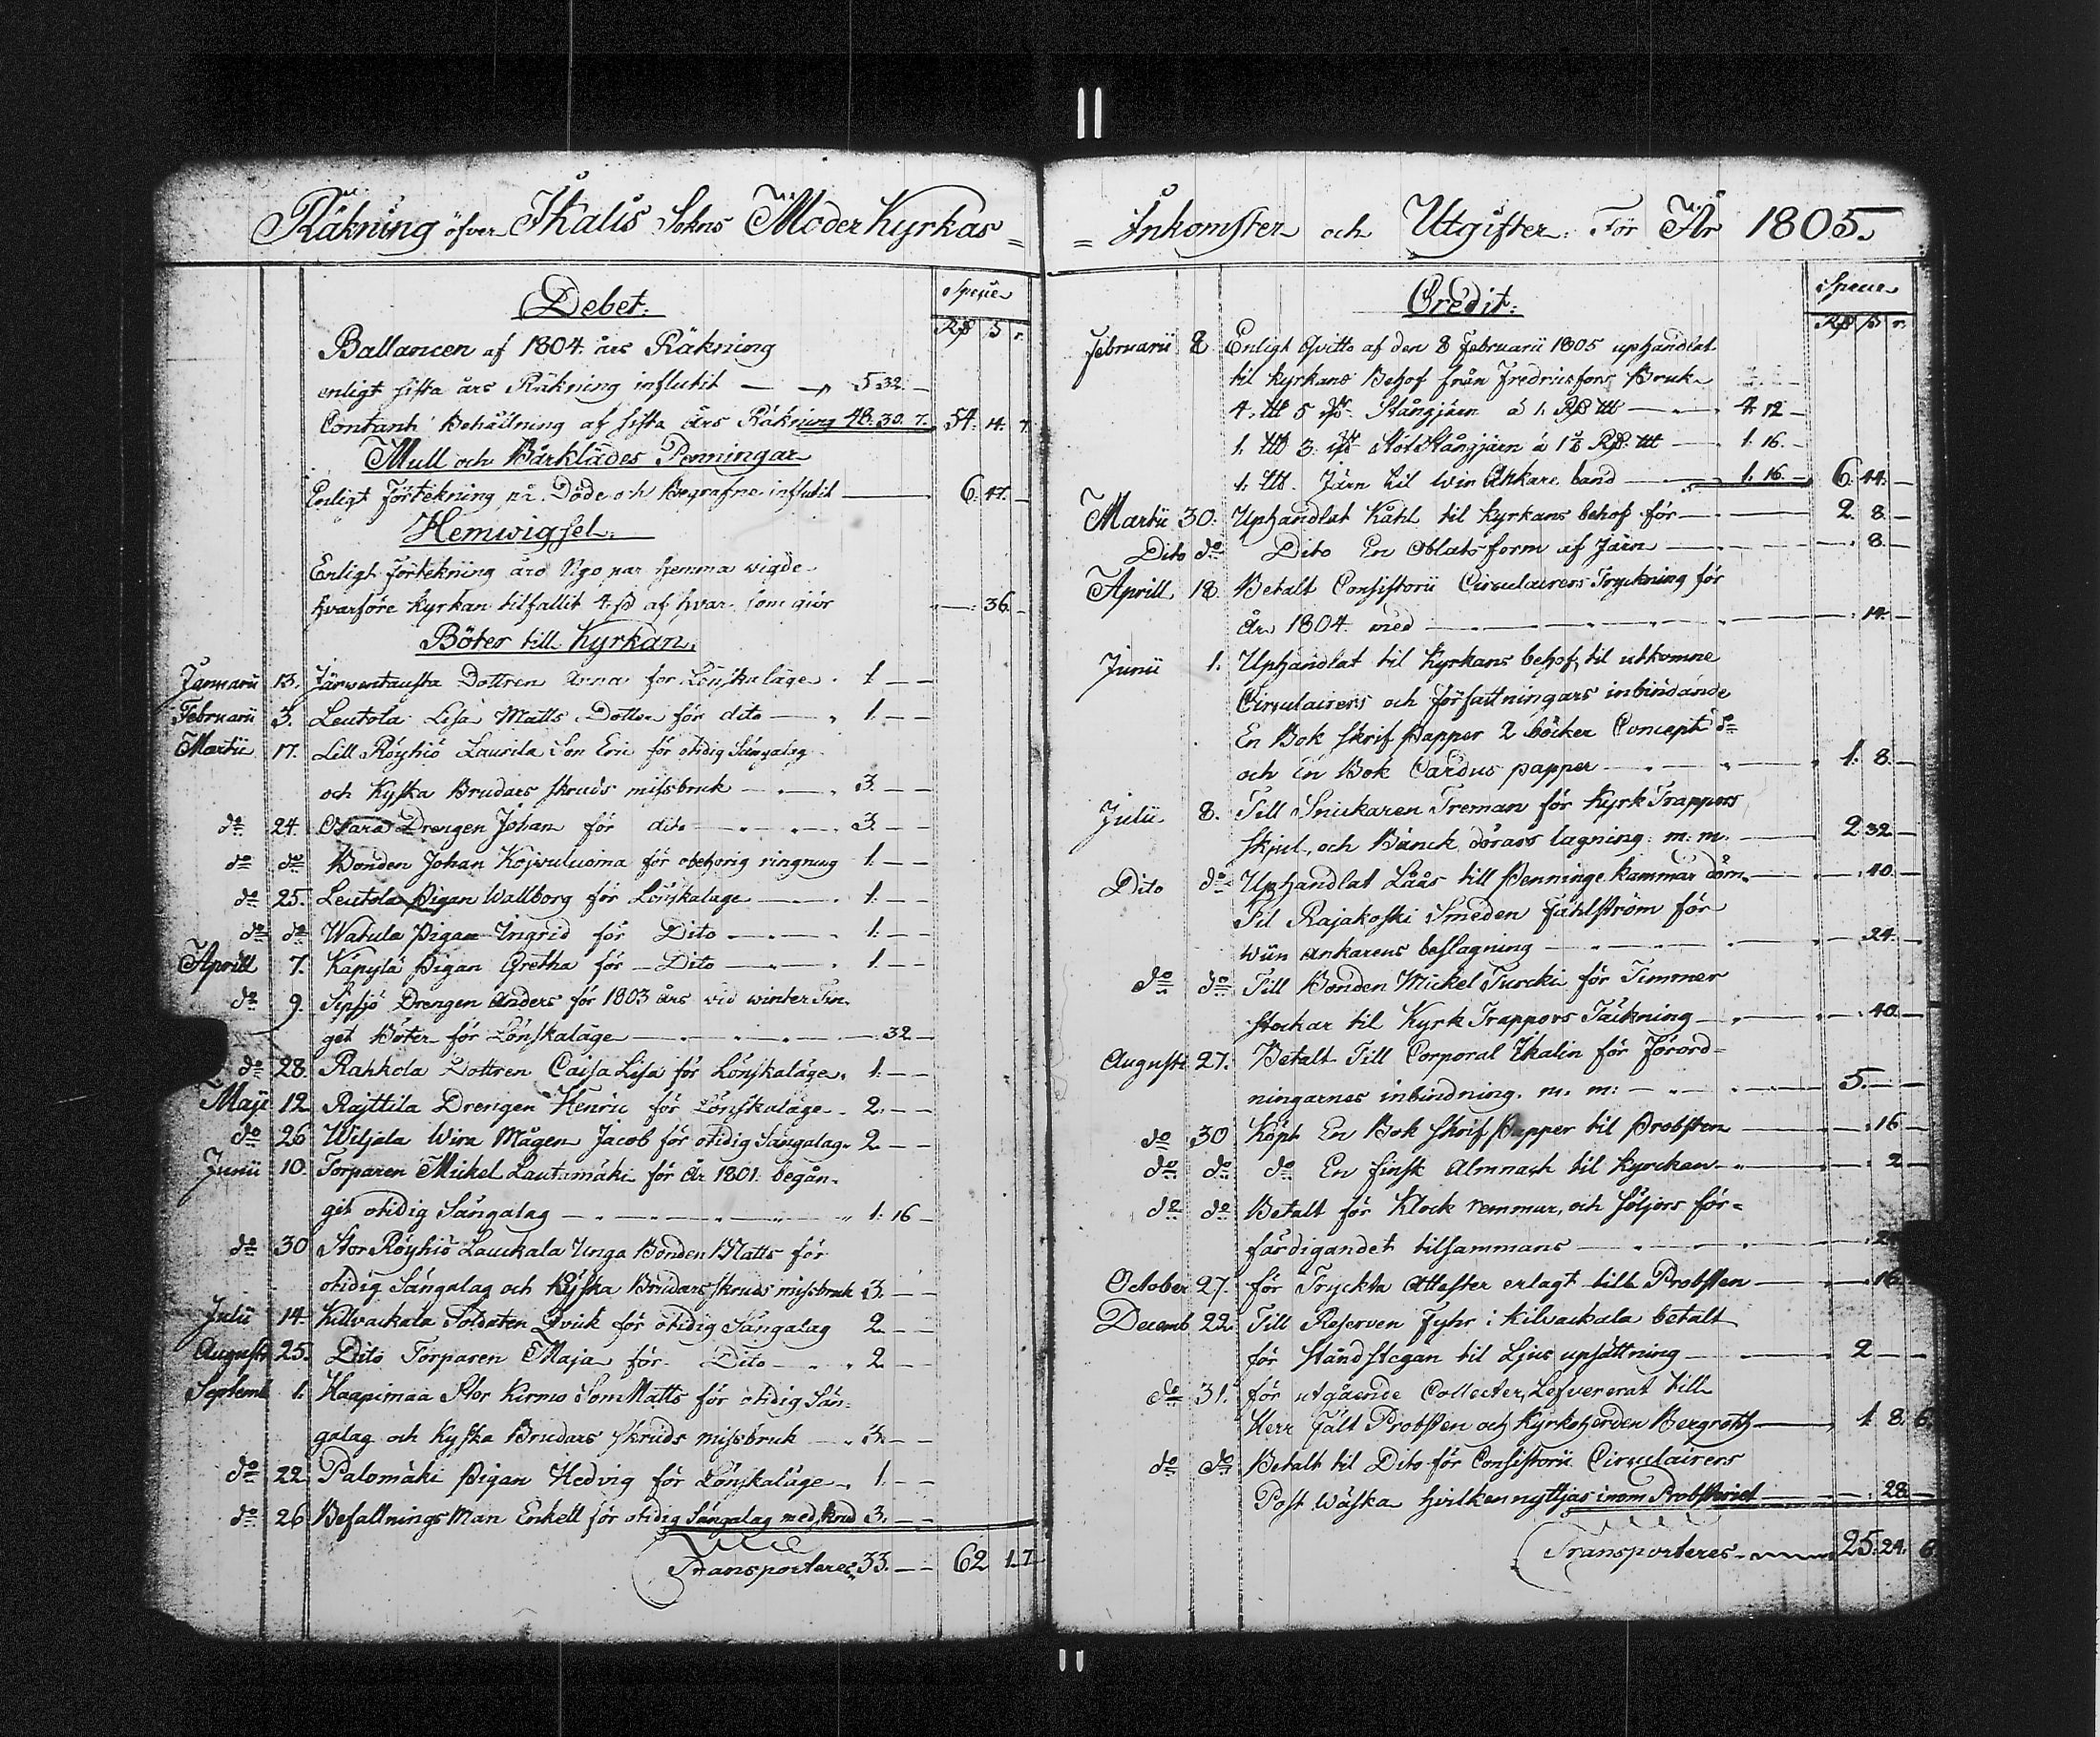 Räkning öfver Ikalis Sokns Moder Kyrkas =
Debet.
Specie
Rß ß r.
Ballancen af 1804 års Räkning
enligt sista års Räkning influtit — 5 32. —
Contant Behållning af sista års Räkning 48. 30. 7. 54. 14. 7.
Mull och Bårklädes Penningar
Enligt Förtekning på Döde och Begrafne influtit — 6. 47. —
Hemwigsel.
Enligt Förtekning äro Ngo par hemma wigde
hvarföre Kyrkan tilfallit 4 ß af hvar som giör — 36. —
Böter till Kyrkan.
Januarii 13. Järwentausta Dottren Anna för Lönskaläge. 1. — —
Februarii 3. Leutola Lisa Matts Dotter för dito — 1. — —
Martii 17. Lill Röyhiö Laurila Son Eric för otidig Sängalag
och Kyska Brudars skruds missbruk — 3. — —
do 24. Osara Drengen Johan för dito — 3. — —
do do Bonden Johan Kojvuluoma för obehörig ringning 1. — —
do 25. Leutola Pigan Wallborg för Lönskalage — 1. — —
do do Watula Pigan Ingrid för Dito — 1. — —
Aprill 7. Käpylä Pigan Gretha för — Dito — 1. — —
do 9. Sipsjö Drengen Anders för 1803 års vid winter Tin-
get Böter för Lönskaläge — 32 —
do 28. Rahkola Dottren Caisa Lisa för Lönskaläge. 1. — —
Maji 12. Rajttila Drengen Henric för Lönskaläge. 2. — —
do 26 Wiljala Wira Mågen Jacob för otidig Sängalag 2 — —
Junii 10. Torparen Mickel Lautamäki för År 1801 begån-
git otidig Sängalag — 1. 16 —
do 30 Stor Röyhiö Lauckala Unga Bonden Matts för
otidig Sängalag och Kyska Brudars skruds missbruk 3. — —
Julii 14. Killvackala Soldaten Qvick för otidig Sängalag 2 — —
Augusti 25. Dito Torparen Maja för Dito — 2 —
Septemb 1. Haapimaa Stor Kirmo Son Matts för otidig Sän-
galag och Kyska Brudars skruds missbruk — 3. — —
do 22. Palomäki Pigan Hedvig för Lönskaläge 1. — —
do 26. Befallnings Man Enkell för otidig Sängalag med skrud 3. — —
Transporteres 33. — — 62 1. 7
= Inkomster och Utgifter För År 1805.
Credit.
Specie
Rß ß r.
Februarii 8. Enligt Qvitto af den 8 Februarii 1805 uphandlat
til Kyrkans Behof från Fredricsfors Bruk
4. ltt 5 Stångjärn à 1. Rß ltt — 4. 12 —
1. ltt 3. Stöt Stångjärn à 1 ½ Rß. ltt — 1. 16. —
1. ltt. Järn til win Ankare band — 1. 16. — 6. 44. —
Martii 30. Uphandlat Kåhl til Kyrkans behof för — 2. 8. —
Dito do Dito En Oblats form af Järn — 8. —
Aprill 18. Betalt Consistorii Circulairers Tryckning för
År 1804 med — 14. —
Junii 1. Uphandlat til Kyrkans behof, til utkomne
Circulairers och författningars inbindande
En Bok skrif Papper 2 böcker Concept do
och En Bok Cardus papper — 1. 8. —
Julii 8. Till Snickaren Treman för Kyrk Trappors
skjul, och Bänck dörars lagning m. m. — 2 32 —
Dito do Uphandlat Låås till Penninge kammar dörn — 40. —
Til Rajakoski Smeden Fahlström för
wiin ankarens beslagning — 24. —
do do Till Bonden Mickel Turcki för Timmer
stockar til Kyrk Trappors Täckning — 40 —
Augusti 27. Betalt Till Corporal Ikalin för Förord-
ningarnes inbindning. m. m: — 5. — —
do 30 Köpt En Bok Skrif Papper til Probsten — 16 —
do do do En finsk Almnach til Kyrckan — 2 —
do do Betalt för Klock remmar, och Söljors för-
färdigandet tilsammans —
October 27. för Tryckta Attester erlagt till Probsten — 16
Decemb. 22. Till Reserven Fyhr i Kilvackala betalt
för ståndstegan til Ljus upsättning — 2 — —
do 31. för utgående Collecter, Lefvererat till
Herr Fält Probsten och Kyrkoherden Bergroth — 1. 8. 6.
do do Betalt til Dito för Consistorii Circulairers
Post wäska hvilken nyttjas inom Probsteriet — 28 —
Transporteres — 25. 24. 6.